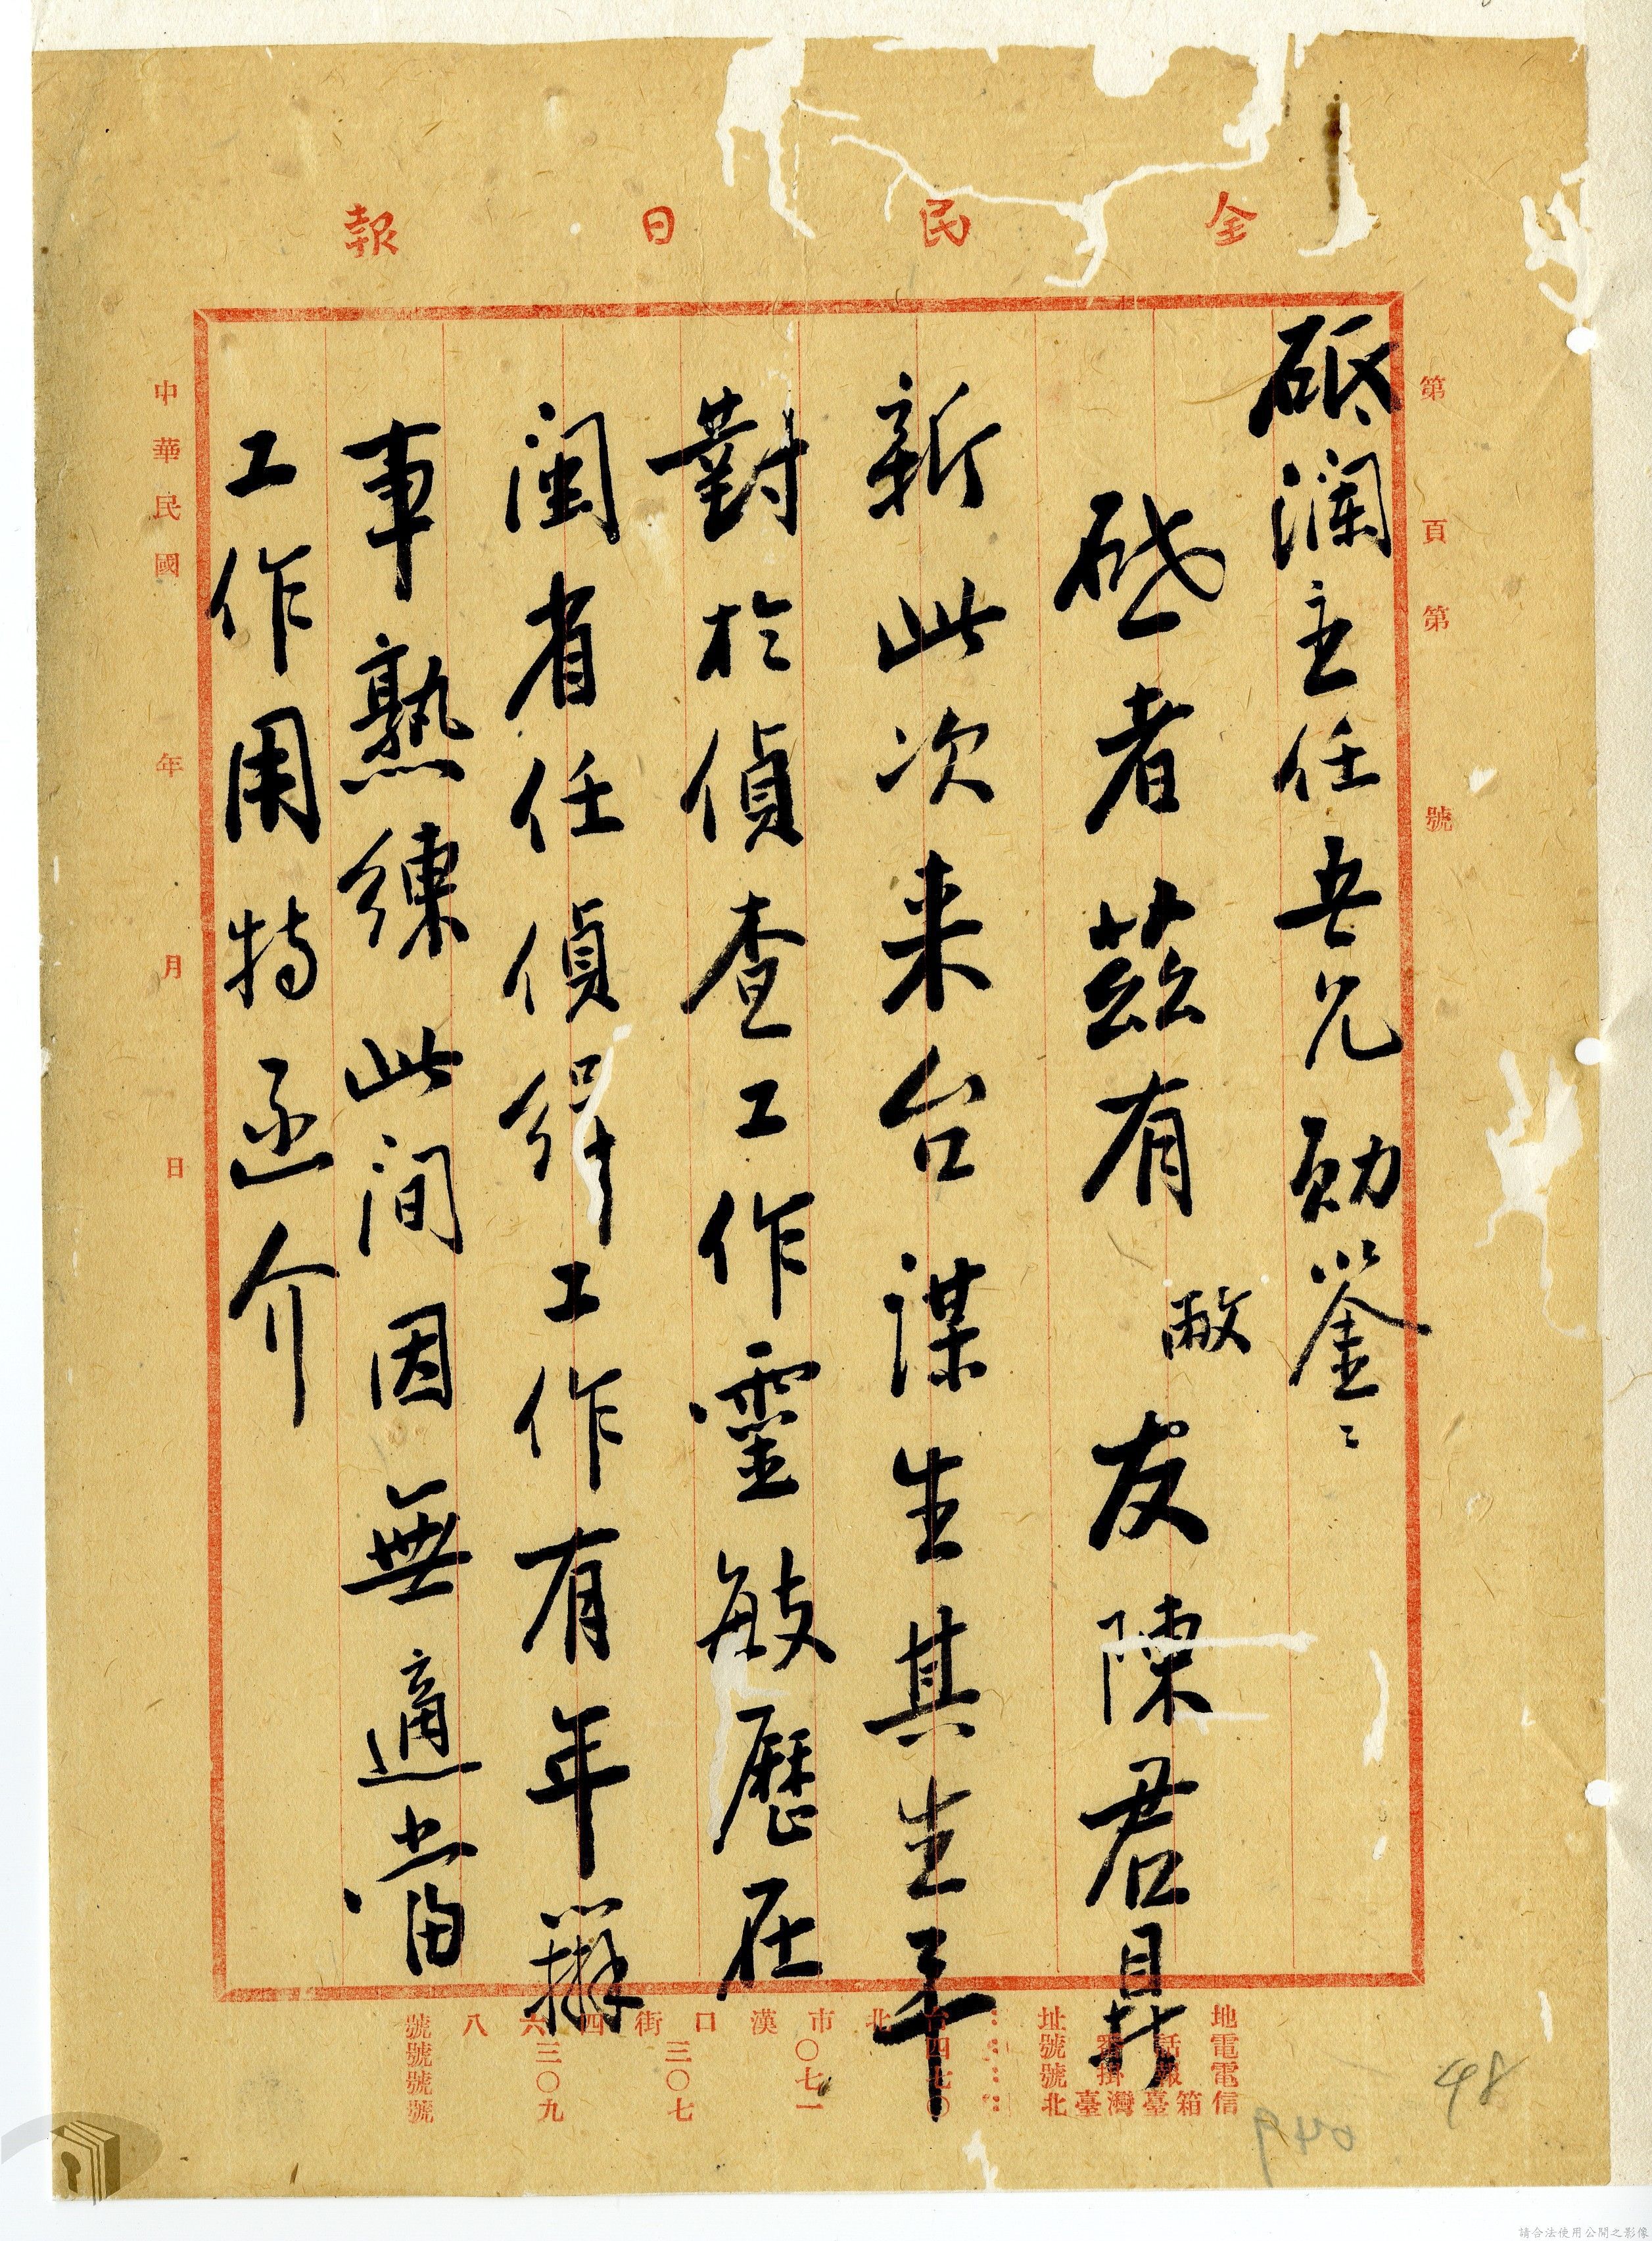 全民日報
第 頁第 號
砥瀾主任吾兄勛鑒：
啟者茲有敝友陳君
新此次来台謀生其生平
對於偵查工作靈敏歷在
閩省任偵緝工作有年辦
事熟練此间因無適當
工作用特函介
中華民國 年 月 日
地址 台北市漢口街四六八號
電話
電報掛號
信箱 臺灣臺北
48
049
請合法使用公開之影像